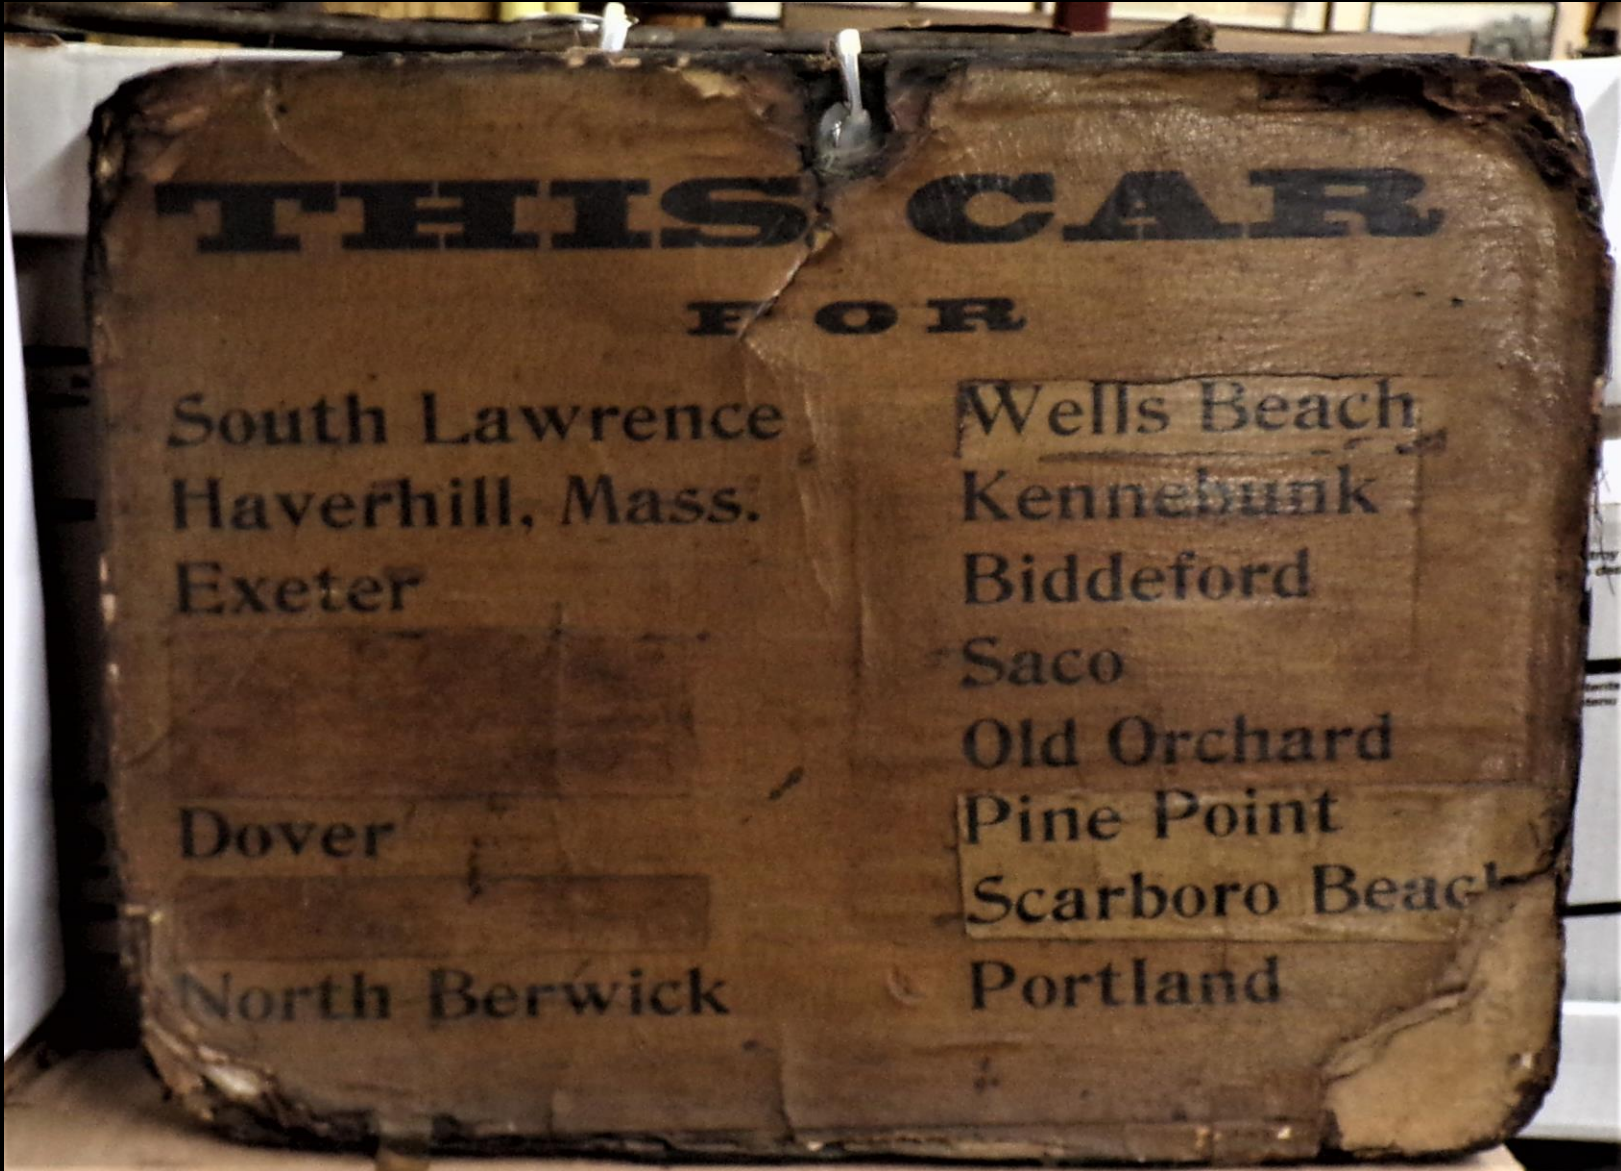 THIS CAR
FOR
South Lawrence
Haverhill, Mass.
Exeter
Dover
North Berwick
Wells Beach
Kennebunk
Biddeford
Saco
Old Orchard
Pine Point
Scarboro Beach
Portland